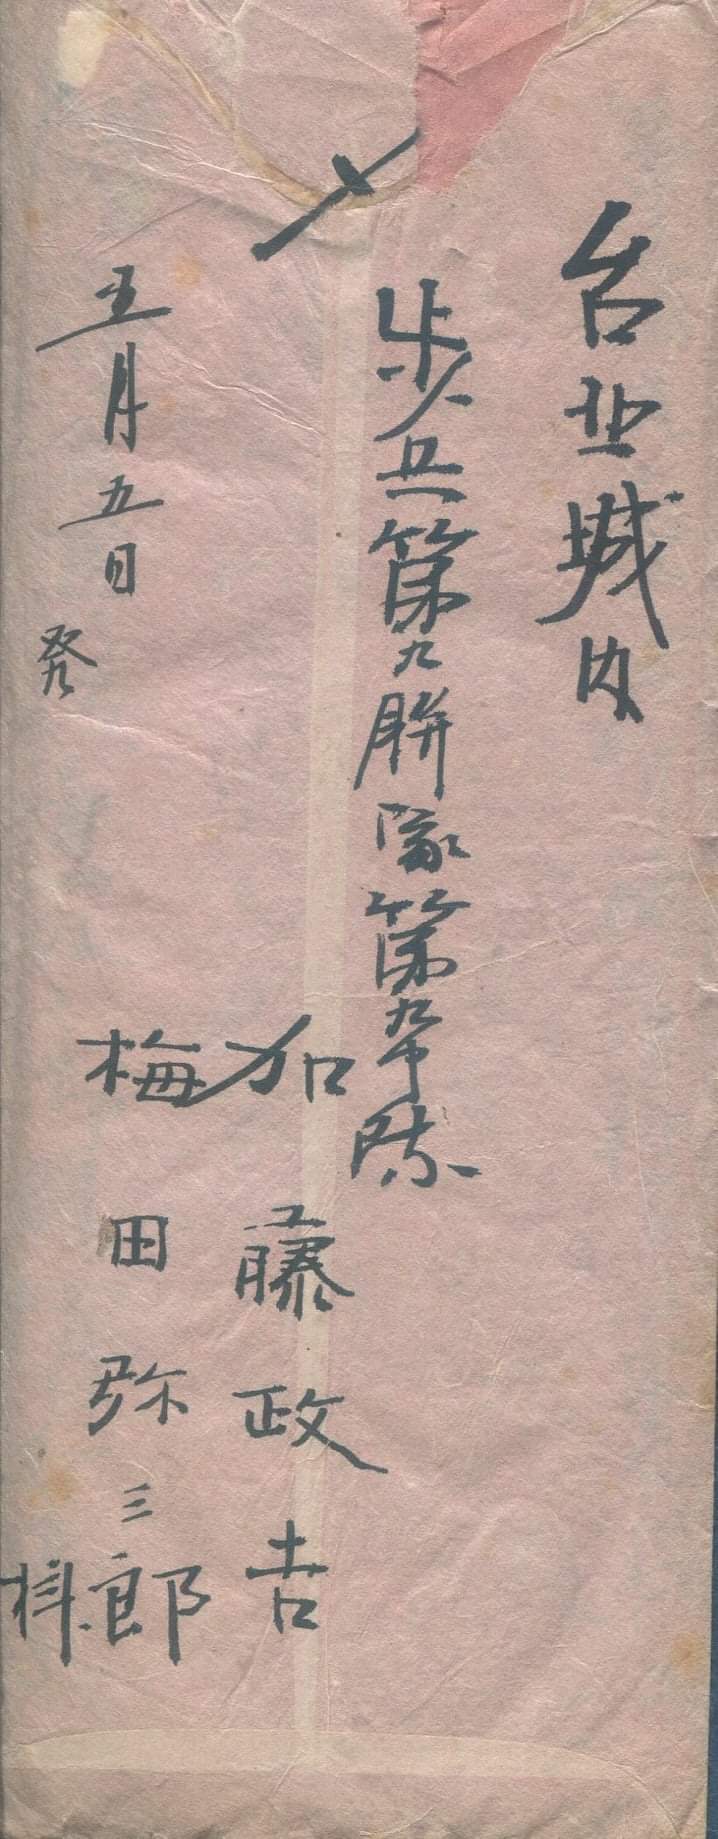 〆
台北城内
歩兵第九聯隊第九中隊
加藤政吉
梅田弥三郎
五月五日発